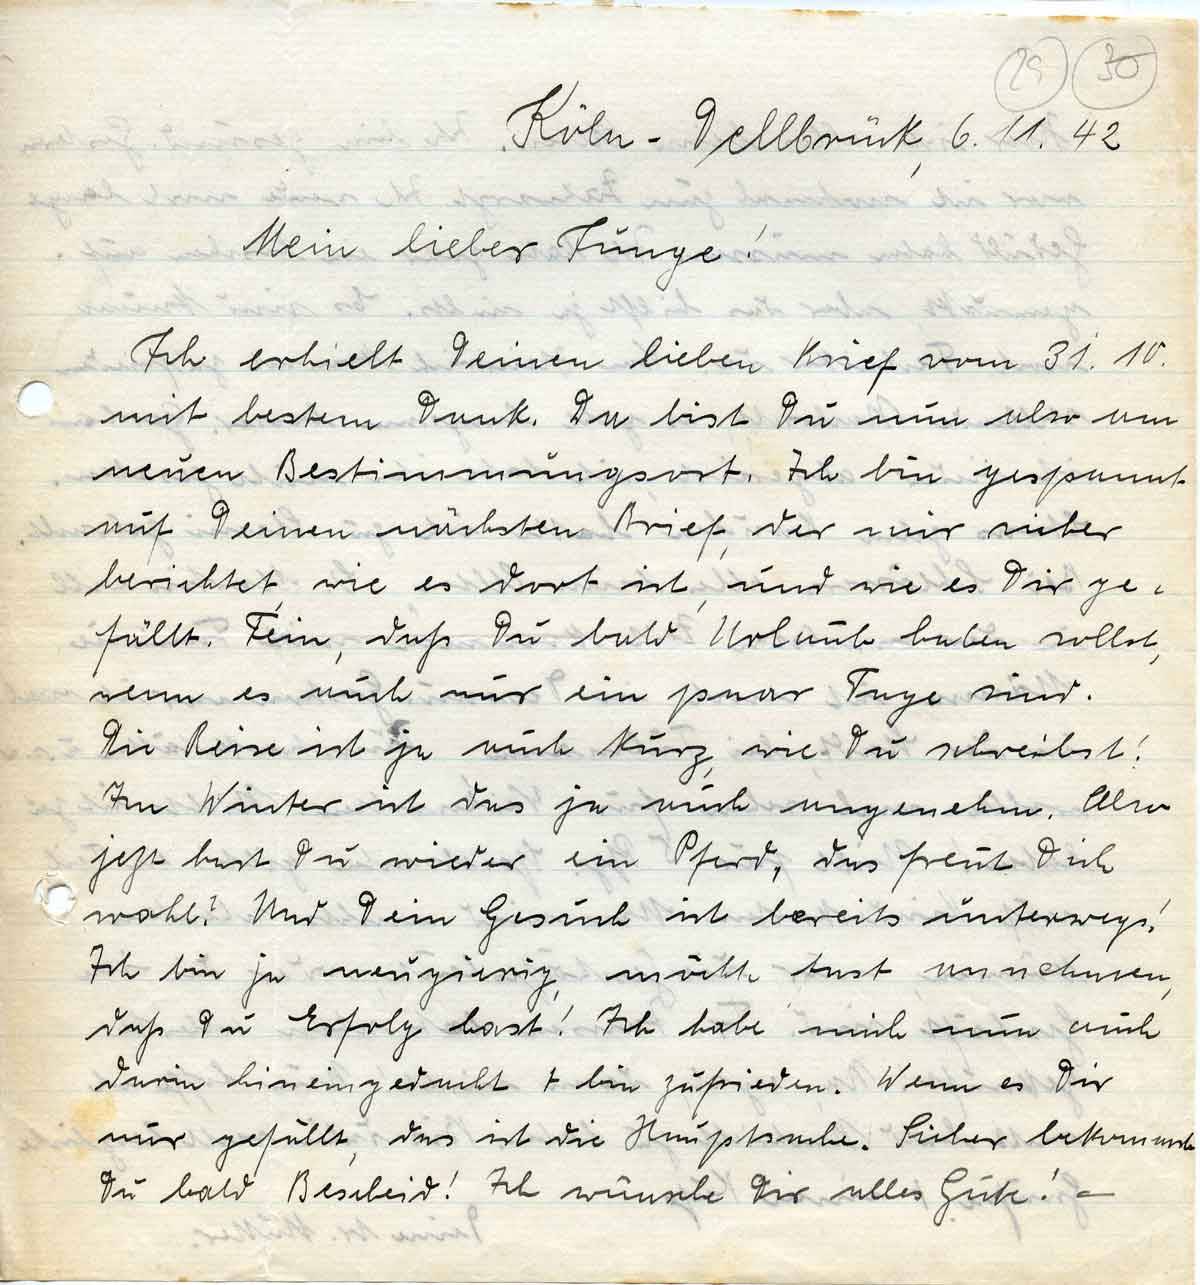 29 30
Köln-Dellbrück, 6.11.42
Mein lieber Junge!
Ich erhielt Deinen lieben Brief vom 31.10.
mit bestem Dank. Da bist Du nun also am
neuen Bestimmungsort. Ich bin gespannt
auf Deinen nächsten Brief, der mir sicher
berichtet, wie es dort ist, und wie es Dir ge-
fällt. Fein, daß Du bald Urlaub haben sollst,
wenn es auch nur ein paar Tage sind.
Die Reise ist ja auch kurz, wie Du schreibst!
Im Winter ist das ja auch angenehm. Also
jetzt hast Du wieder ein Pferd, das freut Dich
wohl? Und Dein Gesuch ist bereits unterwegs!
Ich bin ja neugierig, möchte fast annehmen,
daß Du Erfolg hast! Ich habe mich nun auch
darin hineingedacht + bin zufrieden. Wenn es Dir
nur gefällt, das ist die Hauptsache. Sicher bekommst
Du bald Bescheid! Ich wünsche Dir alles Gute! –